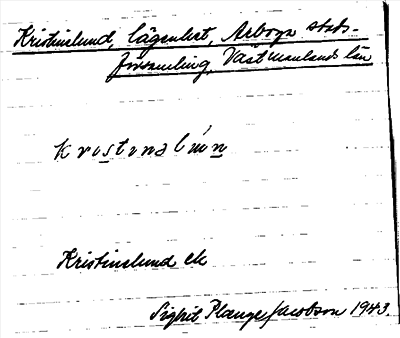 Kristinelund, lägenhet, Arboga stads-
församling, Västmanlands län
Kristinelund ek
Sigrid Plange Jacobson 1943.